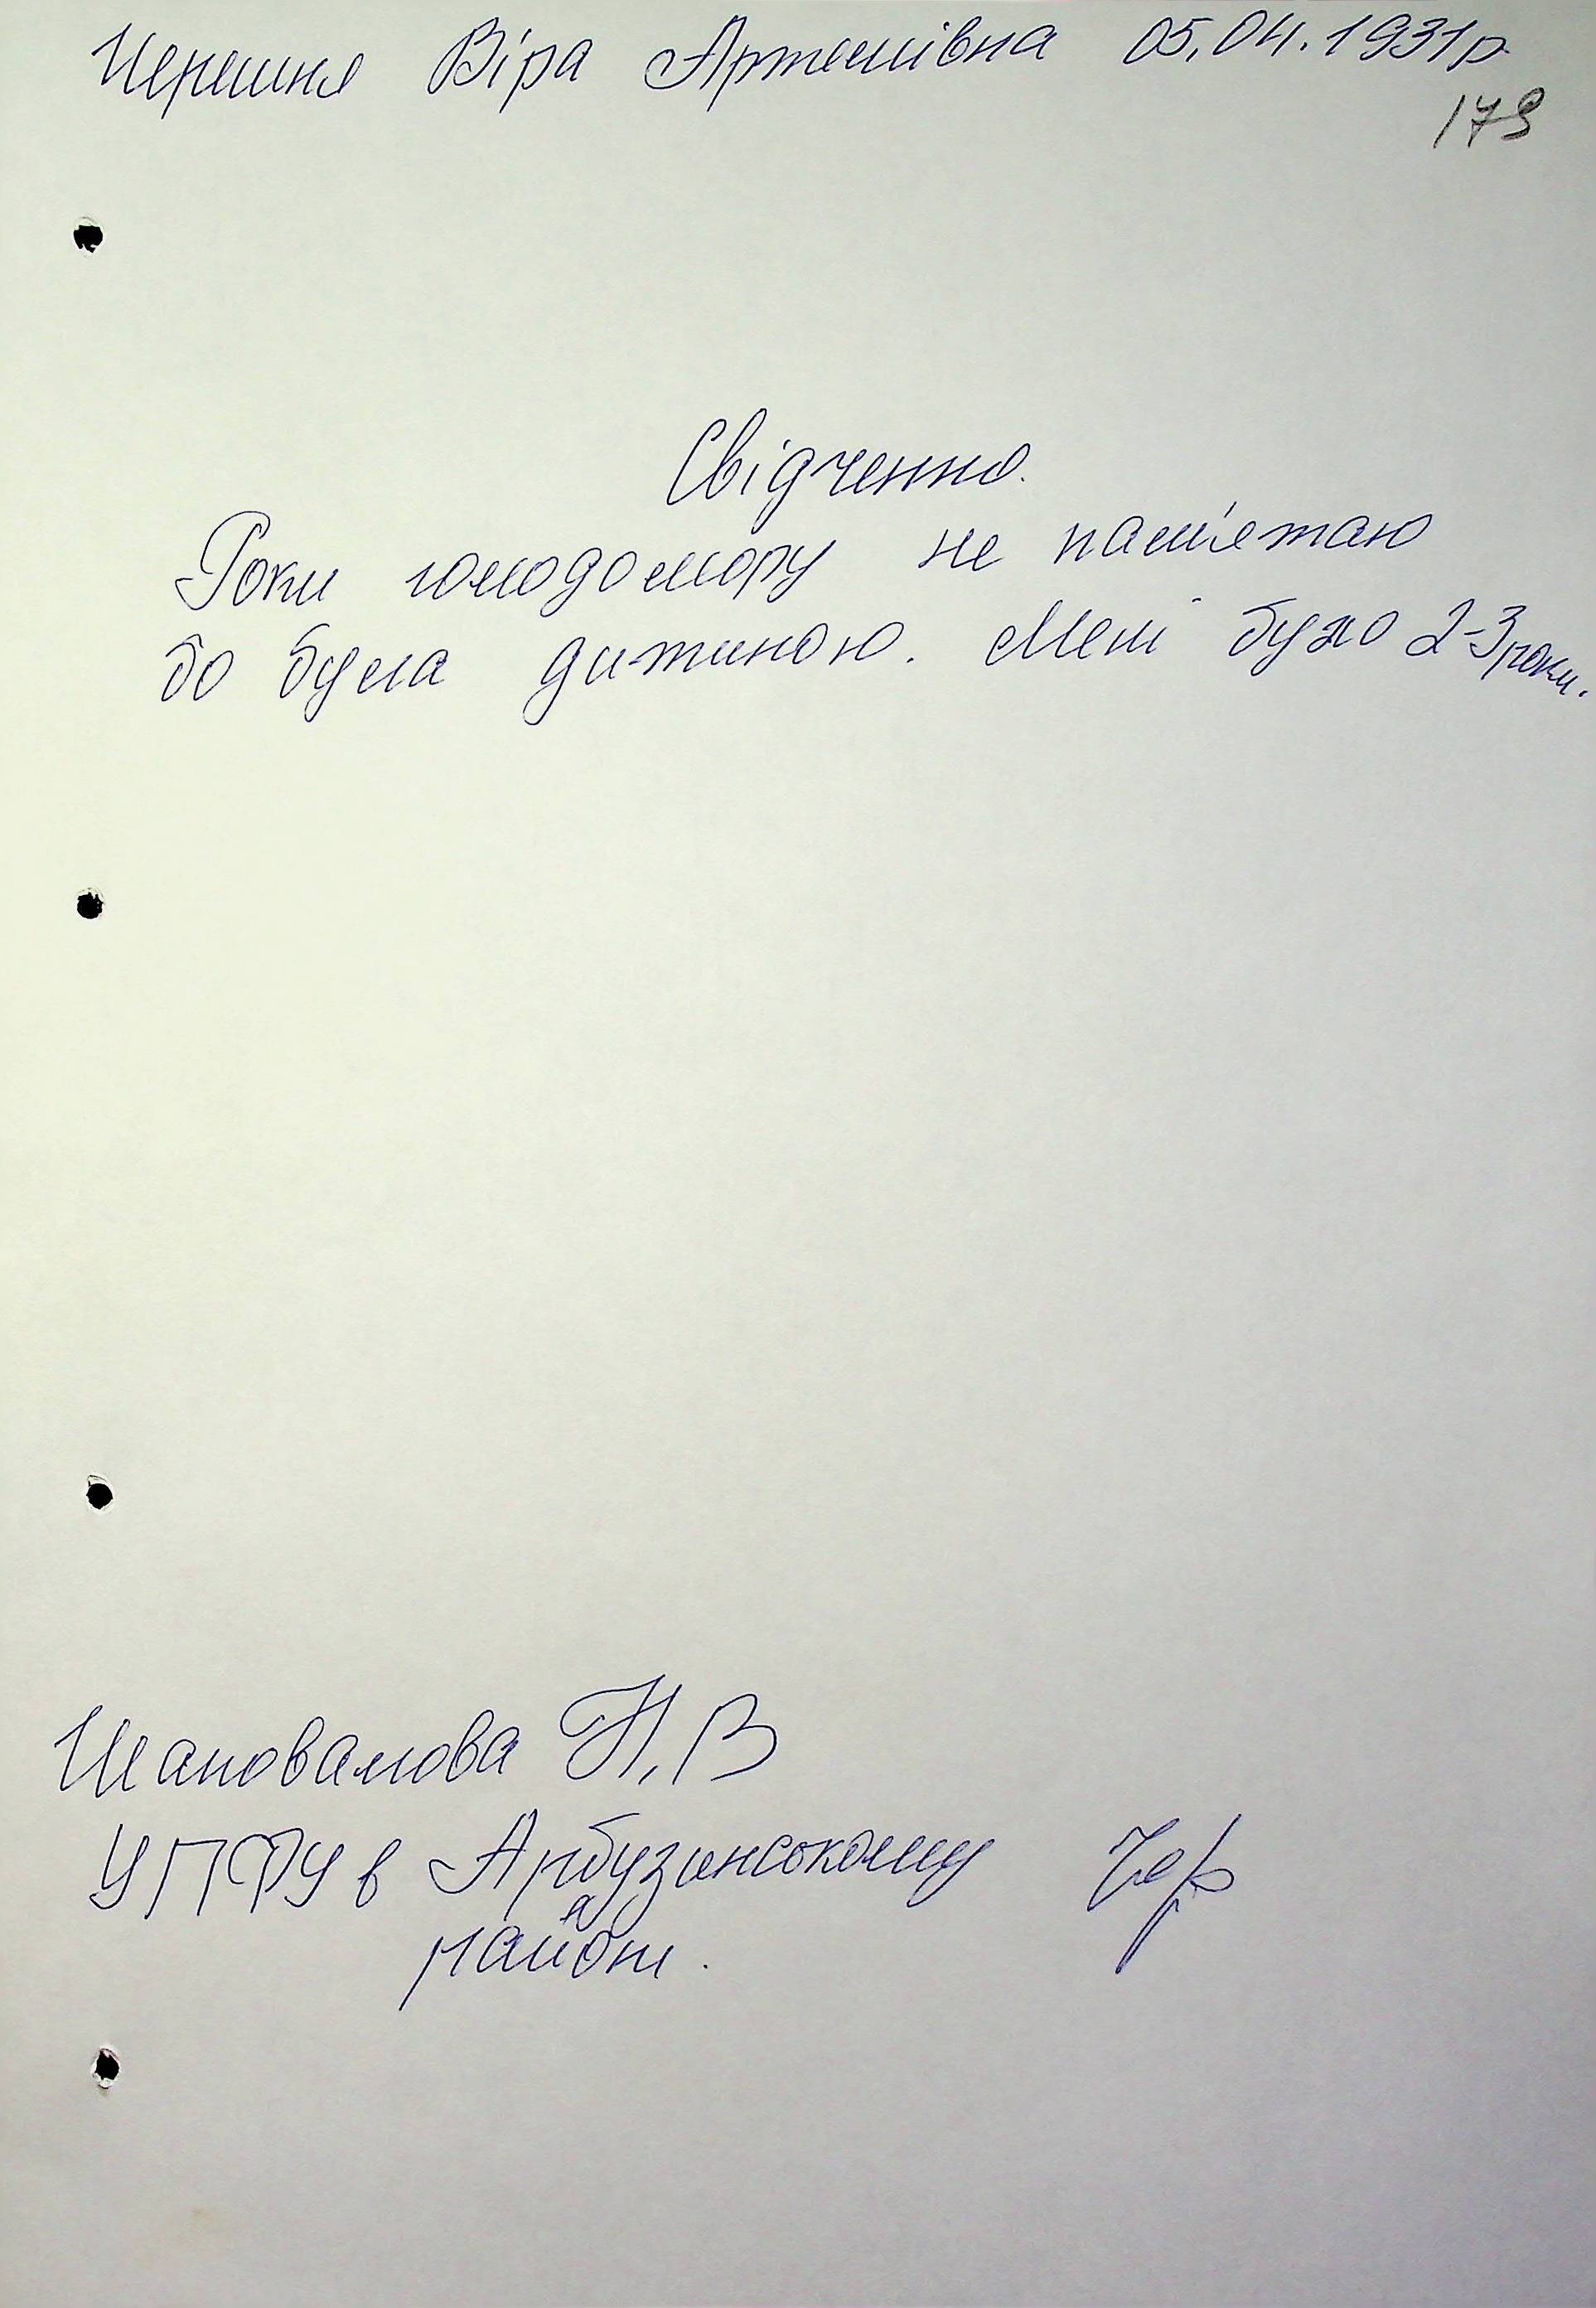 Черешня Віра Артемівна 05.04.1931р.
179
Свідчення.
Роки голодомору не пам'ятаю
бо була дитиною. Мені було 2-3 роки.
Шаповалова Н.В
УПФУ в Арбузинському
районі.
Чер